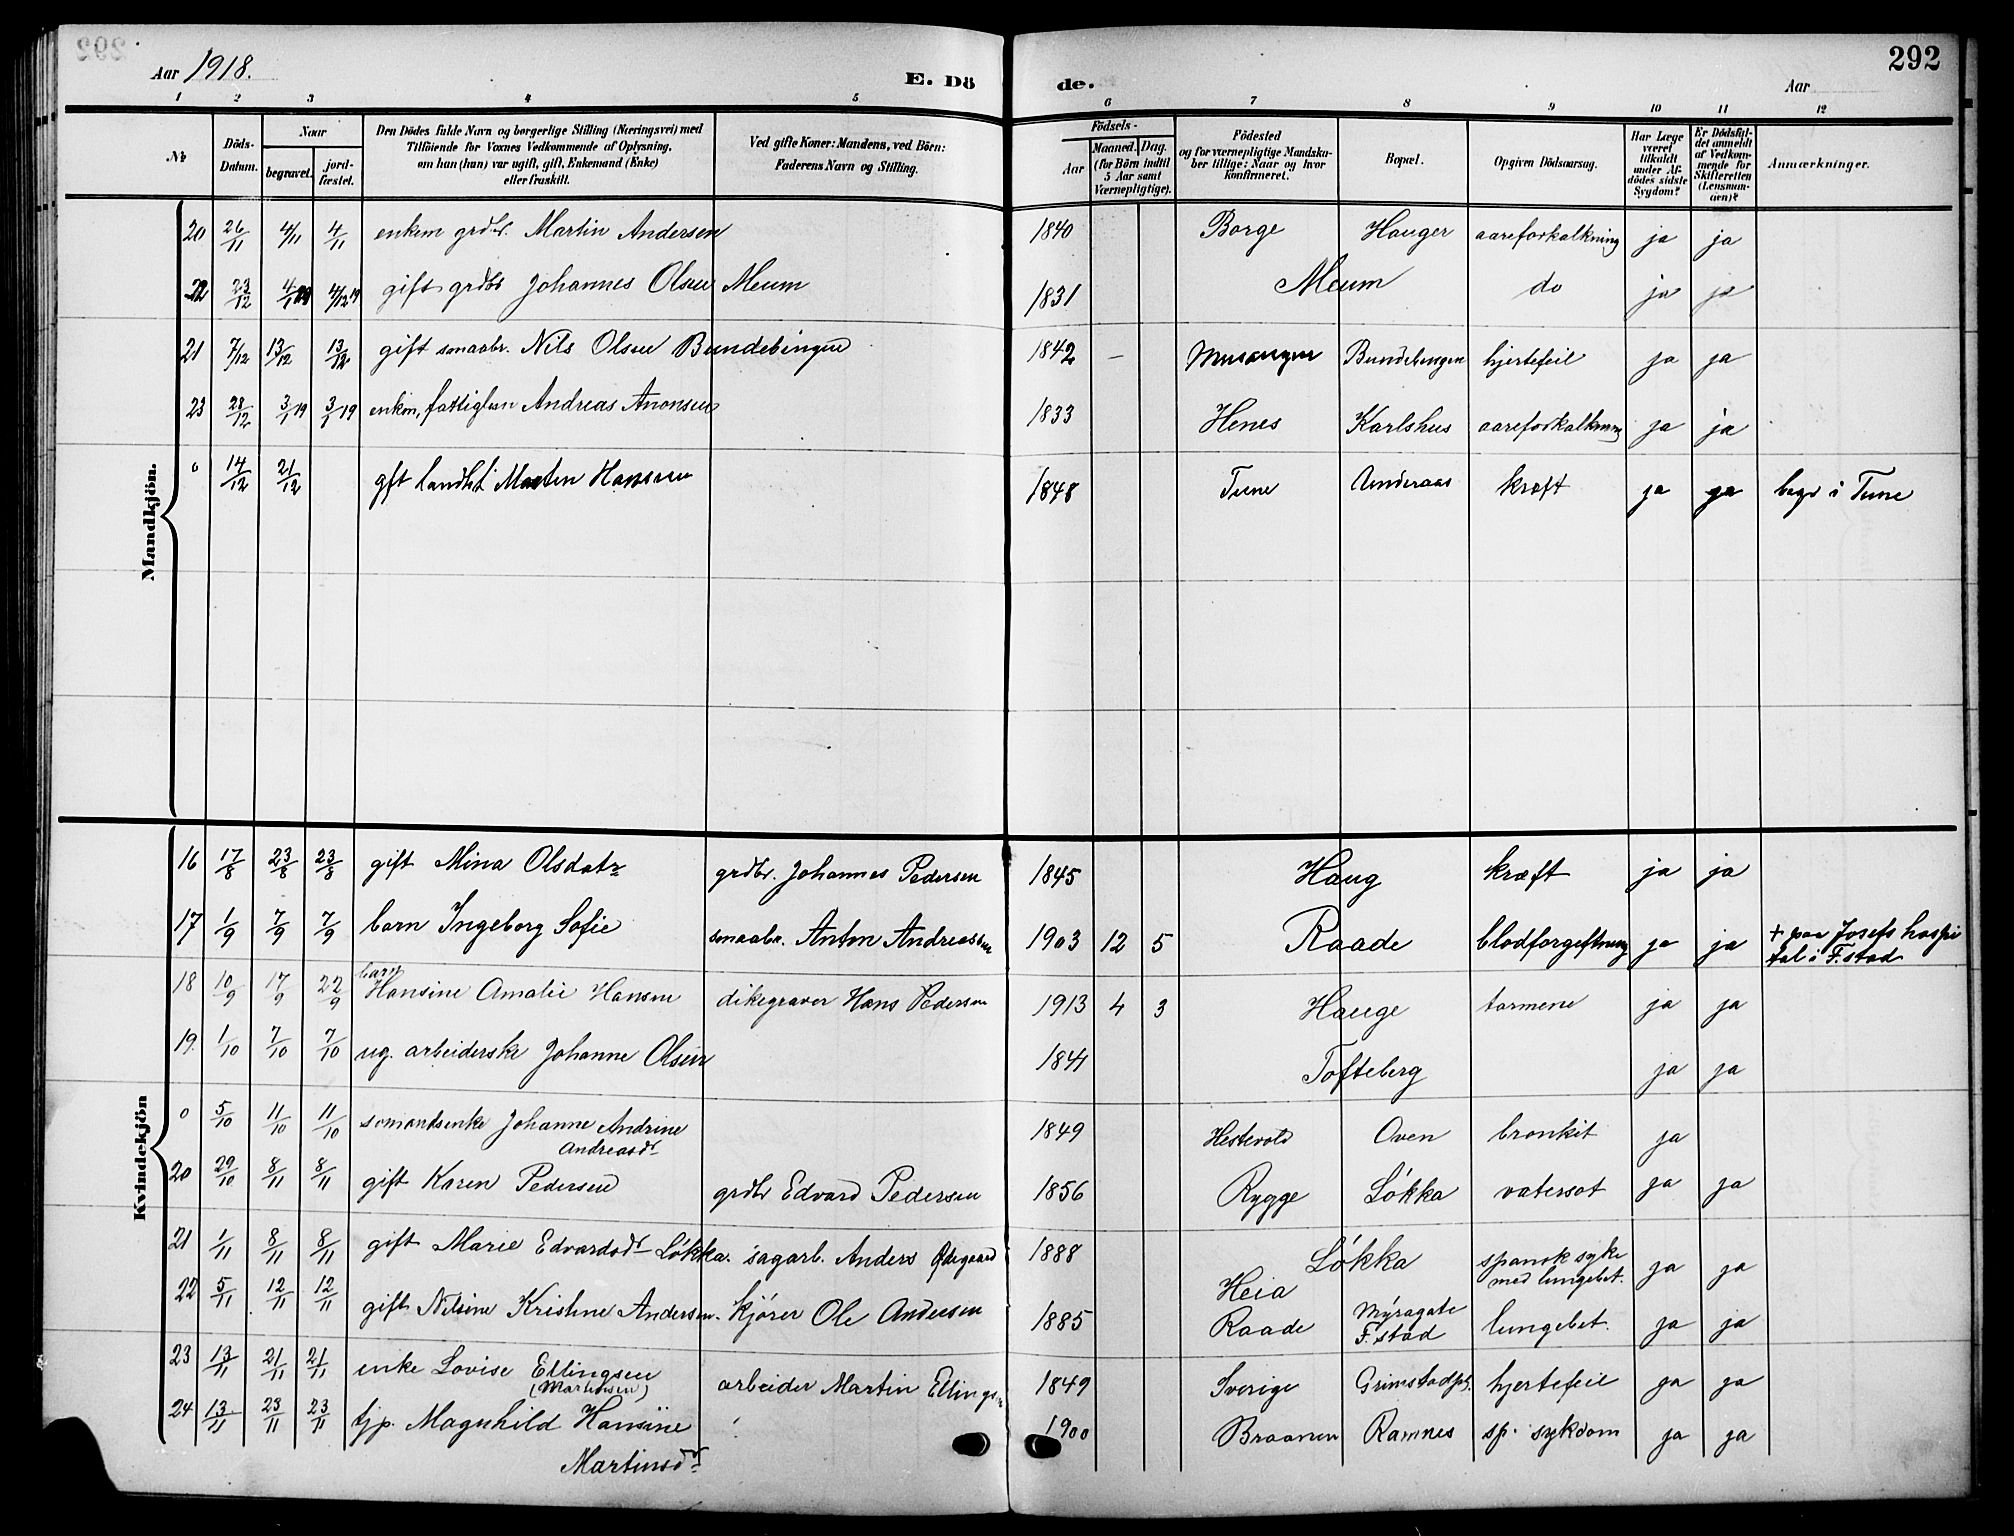 292
Aar 1918.
E. Dö
de.
Aar
292
1 2 3 4 5 6 7 8 9 10 11 12
No
Döds-
Datum.
Naar
begravet.
jord-
fæstet.
Den Dödes fulde Navn og borgerlige Stilling (Næringsvei) med
Tilföiende for Voxnes Vedkommende af Oplysning,
om han (hun) var ugift, gift, Enkemand (Enke)
eller fraskilt.
Ved gifte Koner: Mandens, ved Börn:
Faderens Navn og Stilling.
Födsels-
Aar
Maaned. Dag.
(for Börn indtil
5 Aar samt
Værnepligtige).
Födested
og for værnepligtige Mandska-
ber tillige: Naar og hvor
konfirmeret.
Bopæl.
Opgiven Dödsaarsag.
Har Læge
været
tilkaldt
under Af-
dödes sidste
Sygdom?
Er Dödsfal-
det anmeldt
af Vedkom-
mende for
Skifteretten
(Lensman-
den)?
Anmærkninger.
Mandkjön.
20 26/11 4/11 4/11 enkem grdbr. Martin Andersen 1840 Borge Hauger aareforkalkning ja ja
22 23/12 4/1 19 4/12 19 gift grdbr Johannes Olsen Meum 1831 Meum do ja ja
21 7/12 13/12 13/12 gift smaabr. Nils Olsen Bundebingen 1842 – Bundebengen hjertefeil ja ja
23 28/12 3/1 19 3/1 19 enkm, fattiglem Andreas Aronsen 1833 Henes Karlshus aareforkalkning ja ja
0 14/12 21/12 gft landh. Martin Hansen 1848 Tune Anderaas kræft ja ja begr i Tune
Kvindekjön
16 17/8 23/8 23/8 gift Mina Olsdatr grdbr. Johannes Pedersen 1845 Haug kræft ja ja
17 1/9 7/9 7/9 barn Ingeborg Sofie smaabr. Anton Andreassen 1903 12 5 Raade blodforgiftning ja ja + paa Josefs hospi
tal i F.stad
18 10/9 17/9 22/9 barn Hansine Amalie Hansen dikegraver Hans Pedersen 1913 4 3 Hauge tarmene ja ja
19. 1/10 7/10 7/10 ug. arbeiderske Johanne Olsen 1841 Tofteberg ja ja
0 5/10 11/10 11/10 sømandsenke Johanne Andrine
Andreasdr 1849 Hestevold Oven bronkit ja
20 29/10 8/11 8/11 gift Karen Pedersen grdbr Edvard Pedersen 1856 Rygge Løkka vatersot ja ja
21 1/11 8/11 8/11 gift Marie Edvardsdr Løkka. sagarb. Anders Ødegaard 1888 Løkka spansk syke
med lungebet. ja ja
22 5/11 12/11 12/11 gift Nilsine Kristine Andersen. kjører Ole Andersen 1885 Heia
Raade Myragate
F.stad lungebet. ja ja
23 13/11 21/11 21/11 enke Lovise Ellingsen
(Martinsen) arbeider Martin Ellingsen 1849 Sverige Grimstadpl. hjertefeil ja ja
24 13/11 23/11 23/11 tjp. Magnhild Hansine
Martinsdr 1900 Braanen Ramnes sp. sykdom ja ja